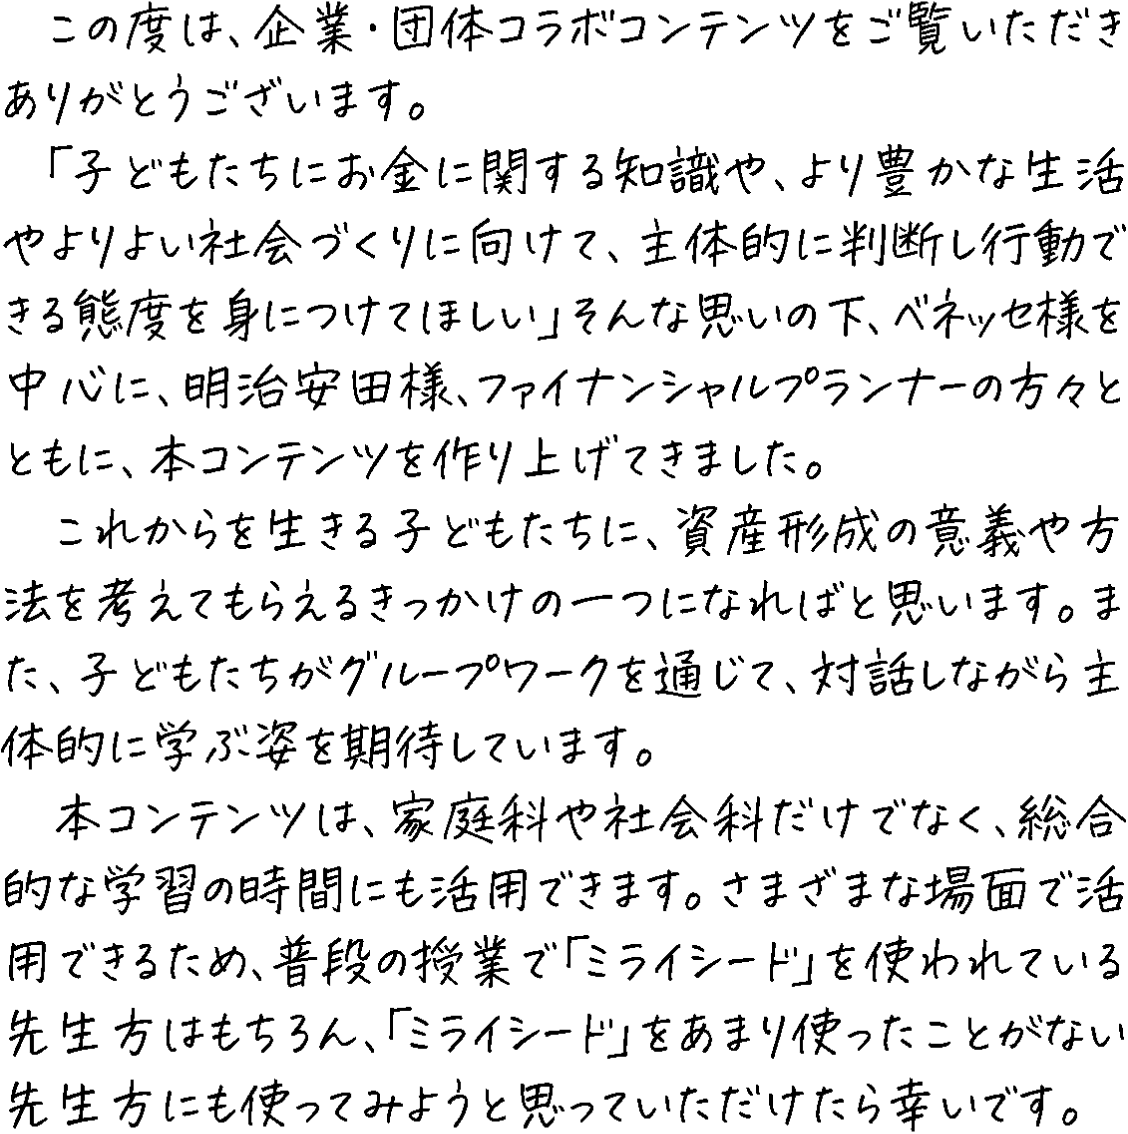 この度は、企業・団体コラボコンテンツをご覧いただき
ありがとうございます。
「子どもたちにお金に関する知識や、より豊かな生活
やよりよい社会づくりに向けて、主体的に判断し行動で
きる態度を身につけてほしい」そんな思いの下、ベネッセ様を
中心に、明治安田様、ファイナンシャルプランナーの方々と
ともに、本コンテンツを作り上げてきました。
これからを生きる子どもたちに、資産形成の意義や方
法を考えてもらえるきっかけの一つになればと思います。ま
た、子どもたちがグループワークを通じて、対話しながら主
体的に学ぶ姿を期待しています。
本コンテンツは、家庭科や社会科だけでなく、総合
的な学習の時間にも活用できます。さまざまな場面で活
用できるため、普段の授業で「ミライシード」を使われている
先生方はもちろん、「ミライシード」をあまり使ったことがない
先生方にも使ってみようと思っていただけたら幸いです。